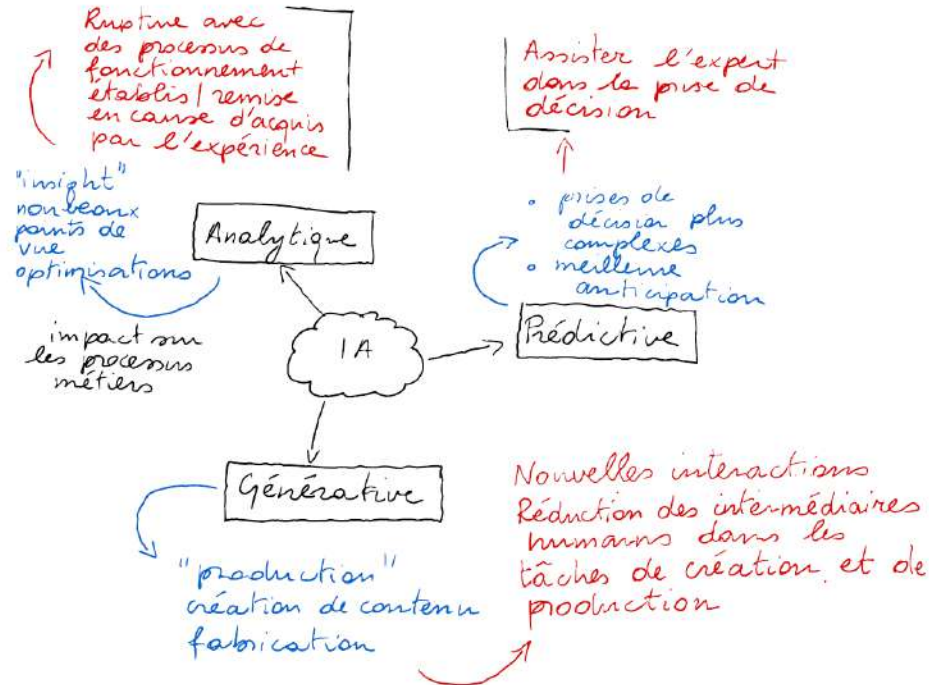 Rupture avec
des processus de
fonctionnement
établis / remise
en cause d'acquis
par l'expérience
Assister l'expert
dans la prise de
décision
"insight"
nouveaux
points de
vue
optimisations
Analytique
• prises de
décision plus
complexes
• meilleure
anticipation
impact sur
les processus
métiers
IA
Prédictive
Générative
"production"
création de contenu
fabrication
Nouvelles interactions
Réduction des intermédiaires
humains dans les
tâches de création et de
production